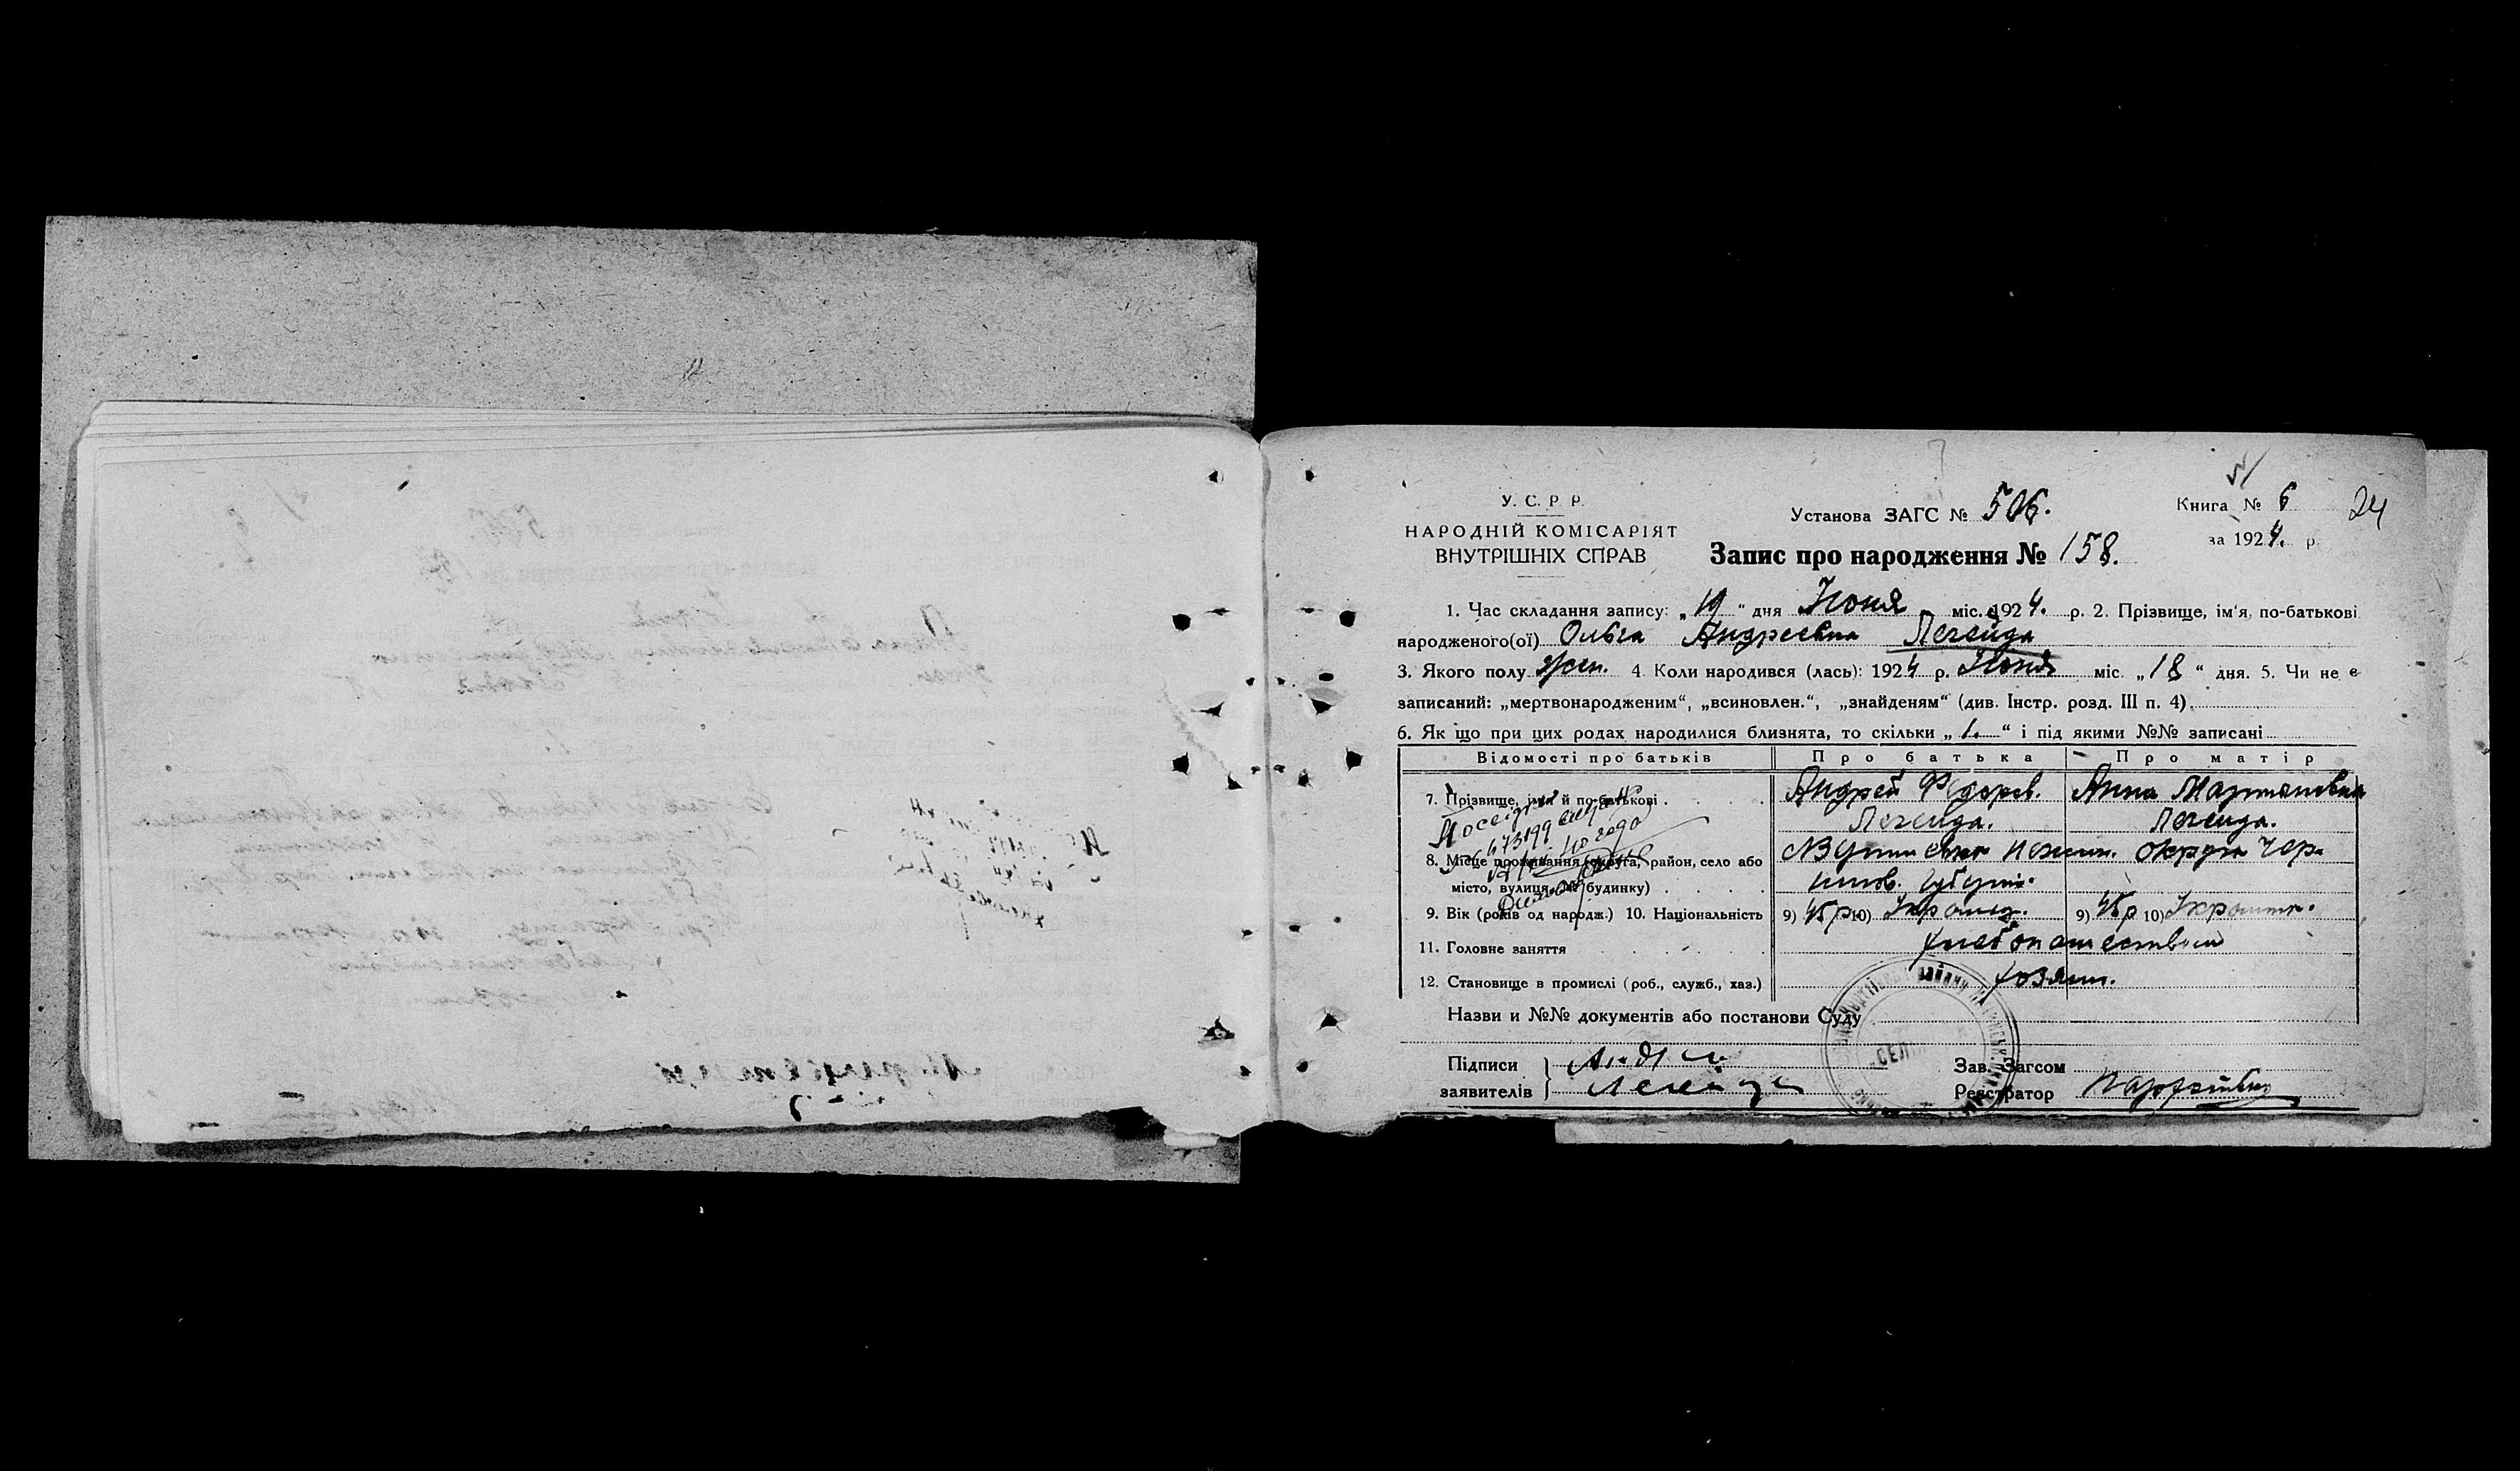 У. С. Р. Р.
НАРОДНІЙ КОМІСАРІЯТ
ВНУТРІШНІХ СПРАВ
Установа ЗАГС № 506.
Книга № 6
24
за 1924. р.
Запис про народження № 158.
1. Час складання запису: „19“ дня Июня міс. 1924. р. 2. Прізвище, ім'я, по-батькові
народженого(ої) Ольга Андреевна Легейда
3. Якого полу жен. 4. Коли народився (лась): 1924 р. Июня міс. „18“ дня. 5. Чи не є
записаний: „мертвонародженим“, „всиновлен.“, „знайденям“ (див. Інстр. розд. III п. 4)
6. Як що при цих родах народилися близнята, то скільки „1.“ і під якими №№ записані
Відомості про батьків Про батька Про матір
7. Прізвище, імя й по-батькові Андрей Федоров. Анна Мартыновна
Легейда. Легейда.
8. Місце проживання (округа, район, село або Нежин. округи Чер-
місто, вулиця, № будинку) нигов. губерні.
9. Вік (років од народж.) 10. Національність 9) 45 р 10) Украинц. 9) 45 р 10) Украинк.
11. Головне заняття хлебопашеством
12. Становище в промислі (роб., служб., хаз.) хозяин.
Назви и №№ документів або постанови Суду
Підписи
заявителів Легейда
Зав. Загсом
Реєстратор